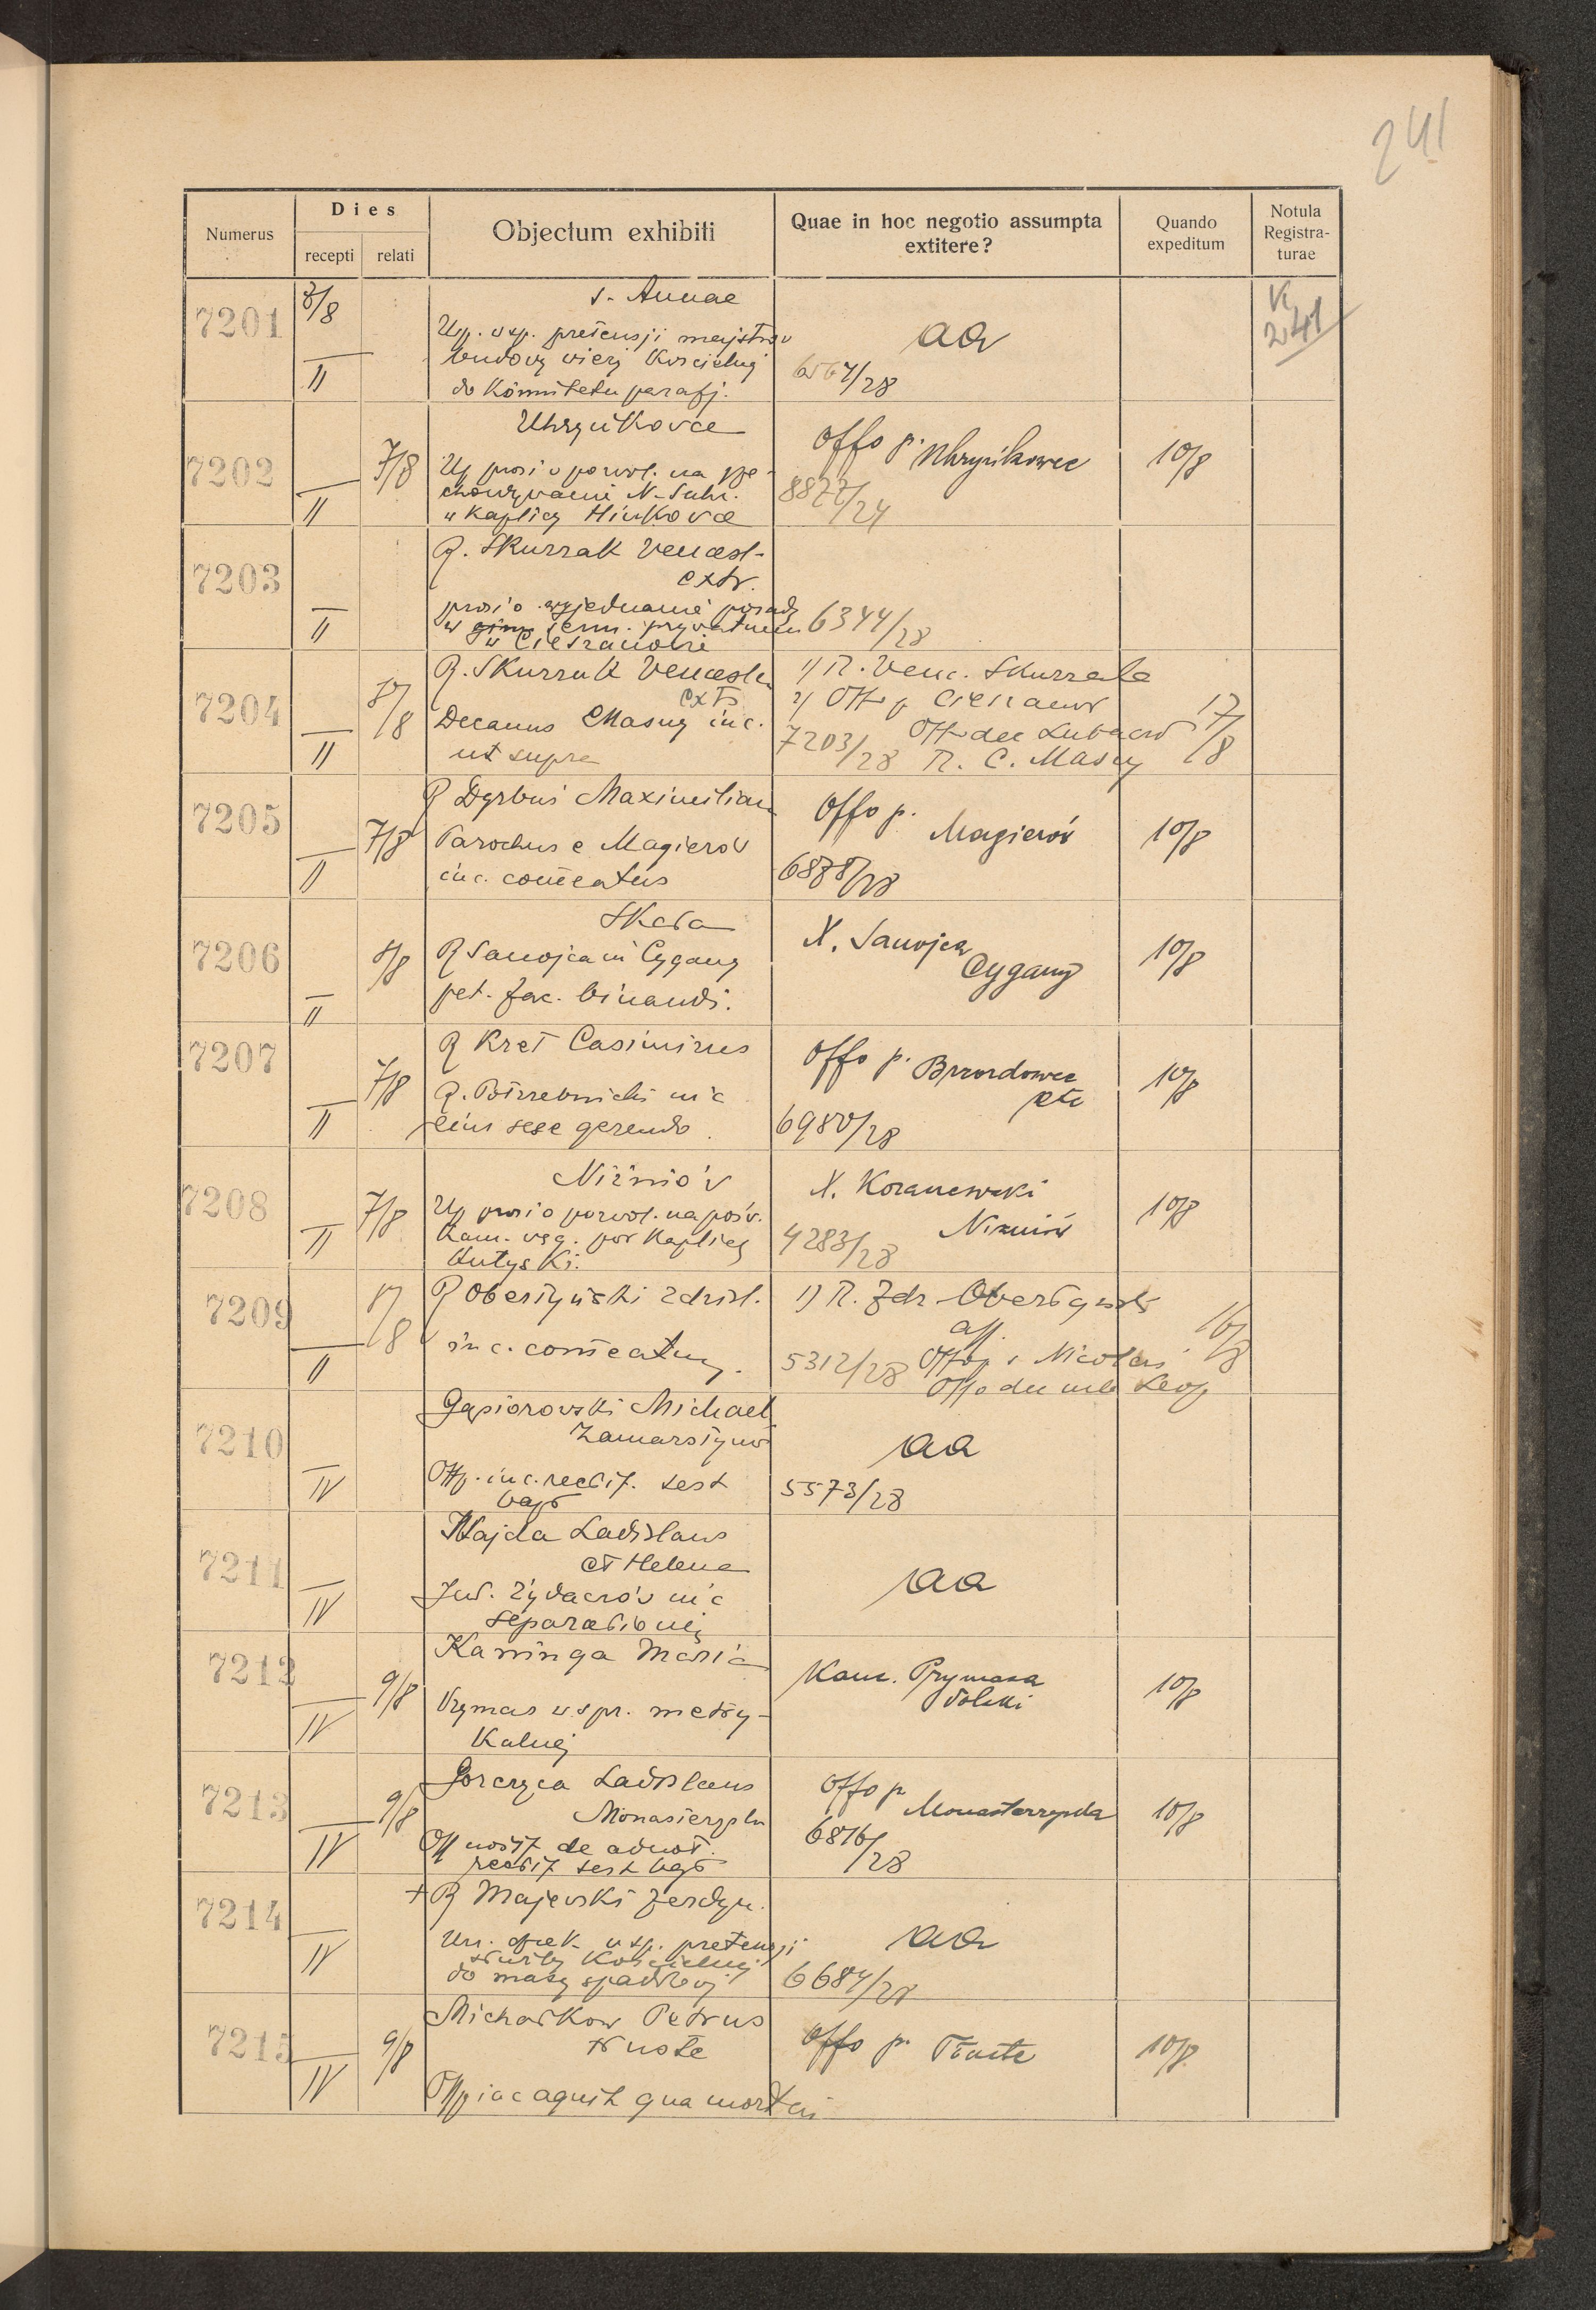 241
Numerus
Dies
recepti relati
Objectum exhibiti
Quae in hoc negotio assumpta
extitere?
Quando
expeditum
Notula
Registra-
turae
7201
7/8
II
s. Annae
Urp. w sp. pretensji majstrów
budowy wieży Kościelnej
do Komitetu parafj.
aa
6567/28
K
241
7202
II
7/8
Uhryńkovce
Up prosi o pozwol. na prze-
chowywanie N. Sakr.
w Kaplicy Hińkovce
Offo p. Uhryńkowce
8827/24
10/8
7203
II
R. Skurzak Vencesl.
extr.
prosi o wyjednanie posady
w gimn semn. prywatnem
w Cieszanowie
6344/28
7204
8/8
II
R. Skurzak Vencesla
extr
Decanus Masny inc.
ut supra
1) R. Venc. Skurzak
2) Offo p Cieszanów
Offo dec Lubaców
7203/28 R. C. Masny
17/8
7205
II
7/8
R Dyrbuś Maximilian
Parochus e Magierov
inc. comeatus
Offo p.
Magierów
6878/28
10/8
7206
II
8/8
Skała
R Sanojca in Cygany
pet. fac. binandi.
X. Sanojca
Cygany
10/8
7207
II
7/8
R Kret Casimirus
eius sese gerendo
Offo p. Brzozdowce
etc
6980/28
10/8
7208
II
7/8
Niżniów
Up prosi o pozwol. na pośw.
kam. węg. pod Kaplicę
Kutyski.
X. Koranewski
Niżniów
4283/28
10/8
7209
II
8/8
R Obertyński Zdzisl.
inc. comeatus.
1) R. Zdz. Obertyński
aff.
5312/28 Offo p s Nicolai
Offo dec urb Leop
16/8
7210
IV
Gąsiorowski Michael
Zamarstynów
Offp. inc. rectif. test
bapt
aa
5573/28
7211
IV
Hajda Ladislaus
et Helena
Jud. Żydaczów inc
separationis
aa
7212
IV
9/8
Kaminga Maria
Prymas w spr. metry-
Kalnej
Kanc. Prymasa
Polski
10/8
7213
IV
9/8
Gorczyca Ladislaus
Monasterzyska
Off notif de adnot.
rectif test bapt
Offo p Monasterzyska
6816/28
10/8
7214
IV
+ R Majewski Ferdyn.
Urz. opiek. w sp. pretensji
służby Kościelnej
do masy spadkowej
aa
6684/28
7215
IV
9/8
Michałkow Petrus
Tłuste
Offp inc agnit qua mortui
Offo p. Tłuste
10/8